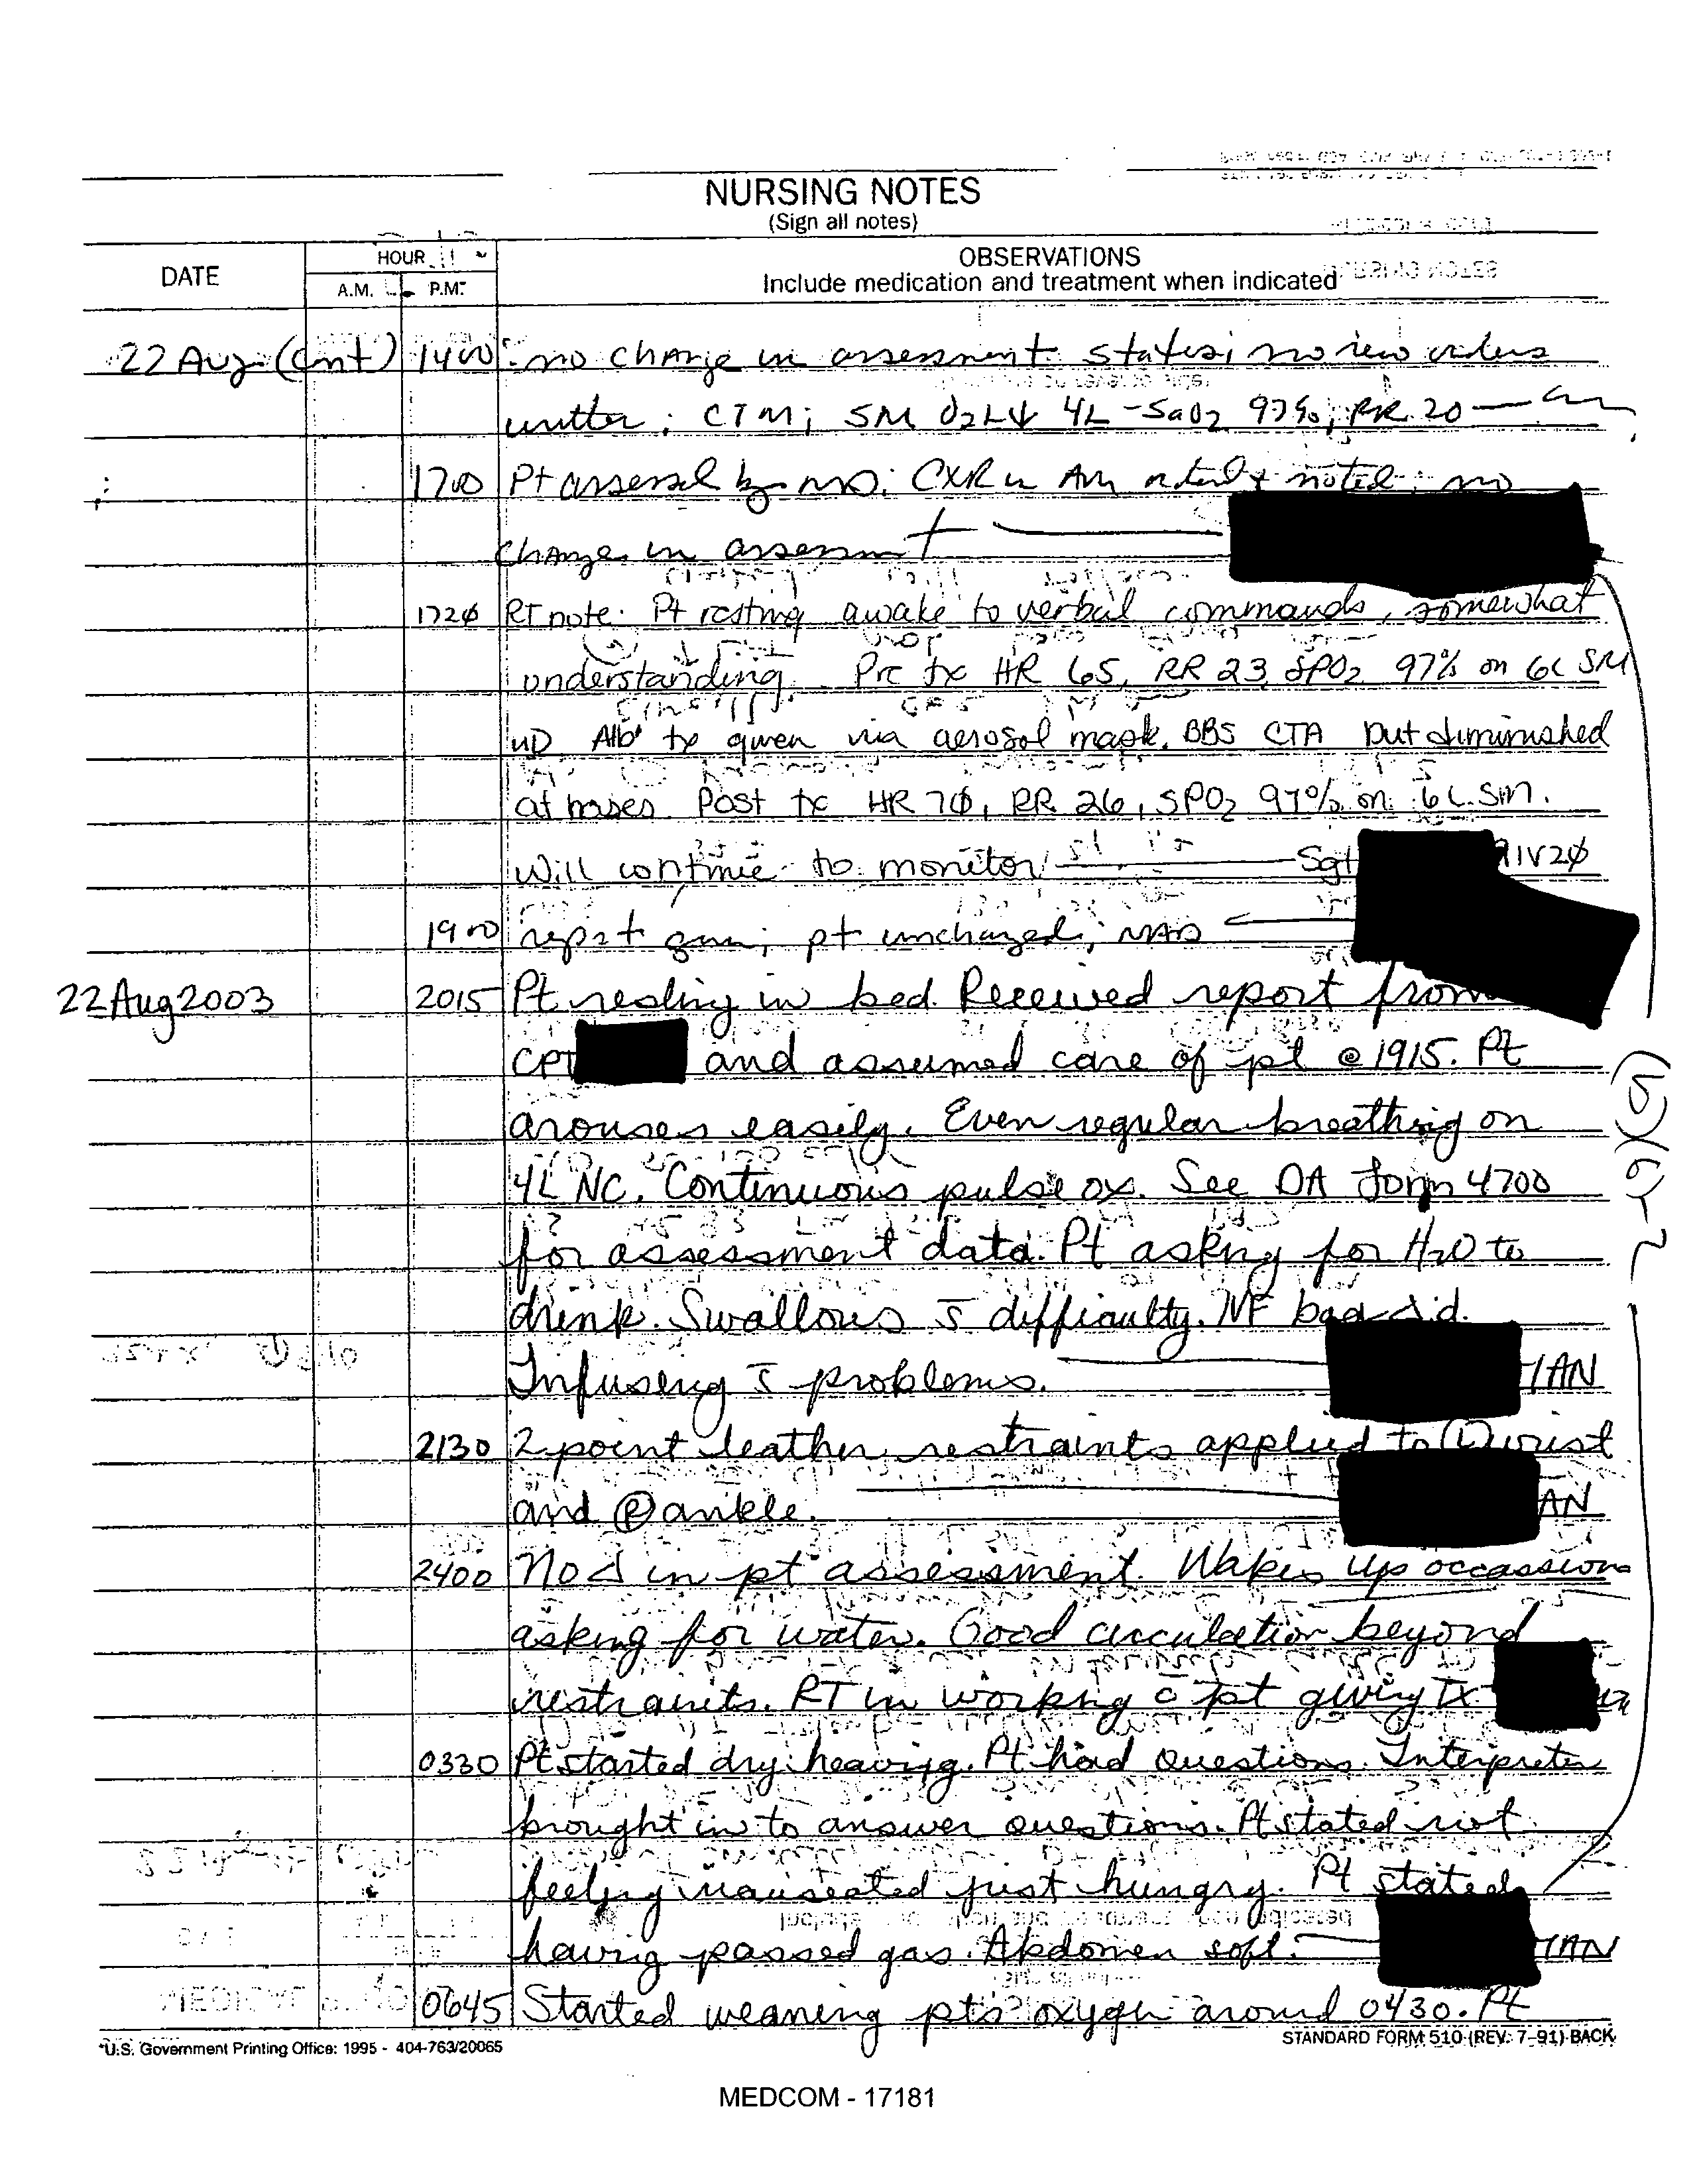 NURSING NOTES
(Sign all notes)
DATE
HOUR
A.M. P.M.
OBSERVATIONS
Include medication and treatment when indicated
22 Aug (cont) 1400 no change in assessment status; no new orders
written; CTM; SM O2 4L - SaO2 97%; RR 20
1700 Pt assessed by MD; CXR in AM noted; no
change in assessment
1720 RT note: Pt resting awake to verbal commands, somewhat
understanding. Pre tx HR 65, RR 23, SPO2 97% on 6L SM
UD Alb tx given via aerosol mask. BBS CTA but diminished
at bases. Post tx HR 70, RR 26, SPO2 97% on 6L SM.
Will continue to monitor Sgt 91V20
1900 report given; pt unchanged; NAD
22 Aug 2003 2015 Pt resting in bed. Received report from
CPT and assumed care of pt @ 1915. Pt
arouses easily. Even regular breathing on
4L NC. Continuous pulse ox. See DA Form 4700
for assessment data. Pt asking for H2O to
drink. Swallows s̄ difficulty. IVF
Infusing s̄ problems. /AN
2130 2 point leather restraints applied to (L) wrist
and (R) ankle. AN
2400 No Δ in pt assessment. Wakes up occassion
asking for water. Good circulation beyond
restraints. RT in working c̄ pt giving tx
0330 Pt started dry heaving. Pt had questions. Interpreter
brought in to answer questions. Pt stated not
feeling nauseated just hungry. Pt stated
having passed gas. Abdomen soft. /AN
0645 Started weaning pts oxygen around 0430. Pt
(b)(6)-2
*U.S. Government Printing Office: 1995 - 404-763/20065
STANDARD FORM 510 (REV. 7-91) BACK
MEDCOM - 17181